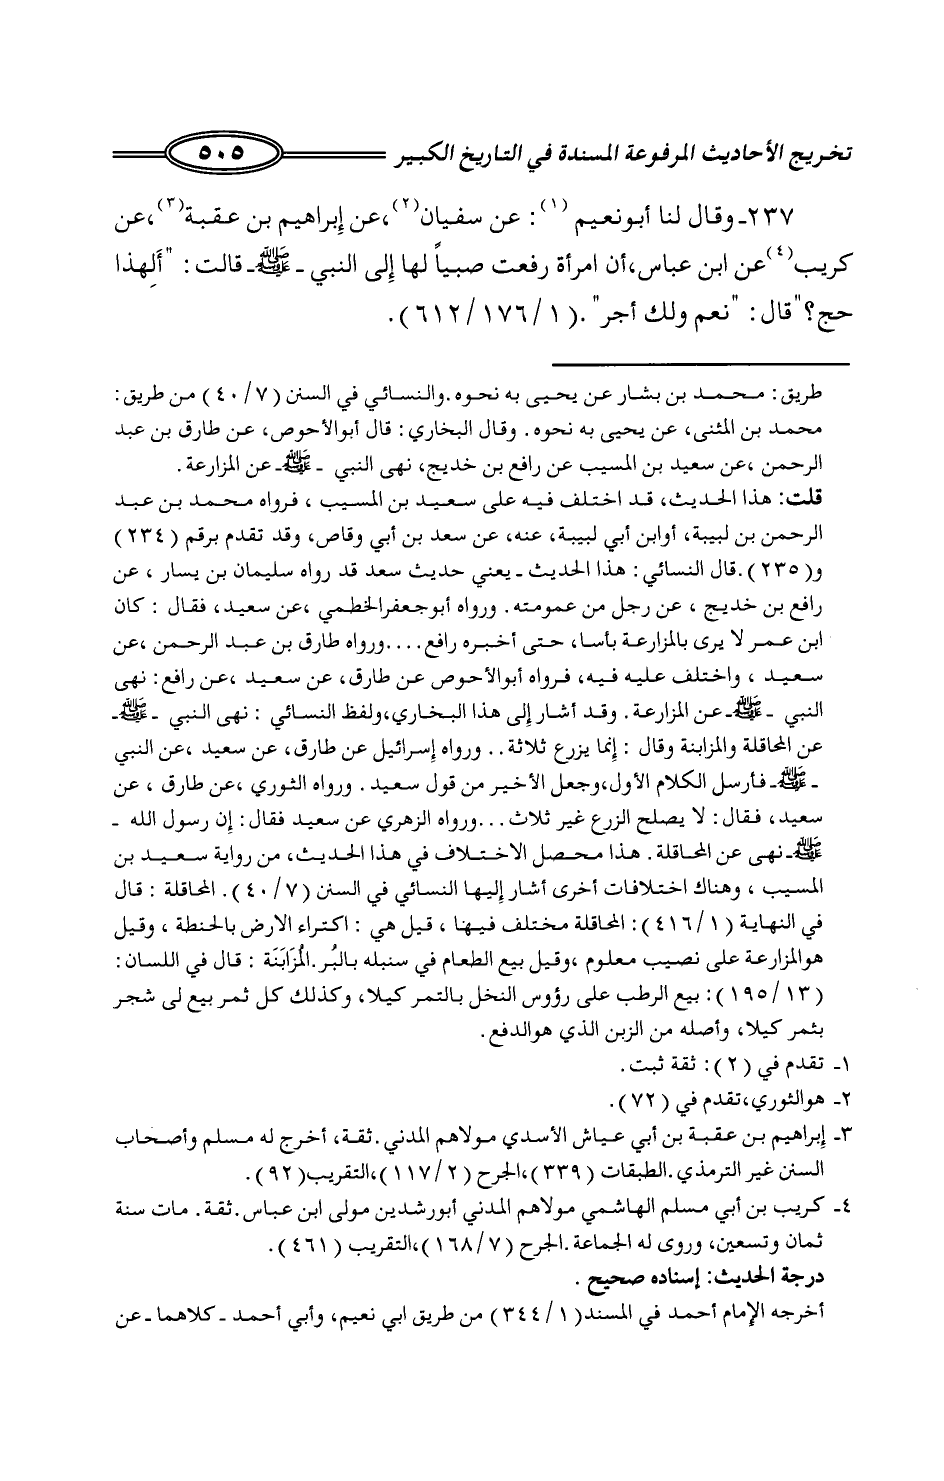 تخريج الأحاديث المرفوعة المسندة في التاريخ الكبير ٥٠٥
٢٣٧ـ وقال لنا أبونعيم (١): عن سفيان(٢)،عن إبراهيم بن عقبة(٣)،عن
كريب(٤)عن ابن عباس،أن امرأة رفعت صبياً لها إلى النبي ـ ﷺ ـ قالت: "ألهذا
حج؟"قال: "نعم ولك أجر".(١/ ١٧٦/ ٦١٢).
طريق: محمد بن بشار عن يحيى به نحوه.والنسائي في السنن (٧/ ٤٠) من طريق:
محمد بن المثنى، عن يحيى به نحوه. وقال البخاري: قال أبوالأحوص، عن طارق بن عبد
الرحمن ،عن سعيد بن المسيب عن رافع بن خديج، نهى النبي ـ ﷺ ـ عن المزارعة.
قلت: هذا الحديث، قد اختلف فيه على سعيد بن المسيب ، فرواه محمد بن عبد
الرحمن بن لبيبة، أوابن أبي لبيبة، عنه، عن سعد بن أبي وقاص، وقد تقدم برقم (٢٣٤)
و(٢٣٥).قال النسائي: هذا الحديث ـ يعني حديث سعد قد رواه سليمان بن يسار ، عن
رافع بن خديج ، عن رجل من عمومته. ورواه أبوجعفرالخطمي ،عن سعيد، فقال : كان
ابن عمر لا يرى بالمزارعة بأسا، حتى أخبره رافع....ورواه طارق بن عبد الرحمن ،عن
سعيد ، واختلف عليه فيه، فرواه أبوالأحوص عن طارق، عن سعيد ،عن رافع: نهى
النبي ـ ﷺ ـ عن المزارعة. وقد أشار إلى هذا البخاري،ولفظ النسائي : نهى النبي ـ ﷺ ـ
عن المحاقلة والمزابنة وقال : إنما يزرع ثلاثة.. ورواه إسرائيل عن طارق، عن سعيد ،عن النبي
ـ ﷺ ـ فأرسل الكلام الأول،وجعل الأخير من قول سعيد. ورواه الثوري ،عن طارق ، عن
سعيد، فقال: لا يصلح الزرع غير ثلاث...ورواه الزهري عن سعيد فقال: إن رسول الله ـ
ﷺ ـ نهى عن المحاقلة. هذا محصل الاختلاف في هذا الحديث، من رواية سعيد بن
المسيب ، وهناك اختلافات أخرى أشار إليها النسائي في السنن (٧/ ٤٠). المحاقلة : قال
في النهاية (١/ ٤١٦): المحاقلة مختلف فيها ، قيل هي : اكتراء الارض بالحنطة ، وقيل
هوالمزارعة على نصيب معلوم ،وقيل بيع الطعام في سنبله بالبُر.المُزَابَنَة : قال في اللسان:
(١٣/ ١٩٥): بيع الرطب على رؤوس النخل بالتمر كيلا، وكذلك كل ثمر بيع لى شجر
بثمر كيلا، وأصله من الزبن الذي هوالدفع.
١ـ تقدم في (٢): ثقة ثبت.
٢ـ هوالثوري،تقدم في (٧٢).
٣ـ إبراهيم بن عقبة بن أبي عياش الأسدي مولاهم المدني.ثقة، أخرج له مسلم وأصحاب
السنن غير الترمذي.الطبقات (٣٣٩)،الجرح (٢/ ١١٧)،التقريب(٩٢).
٤ـ كريب بن أبي مسلم الهاشمي مولاهم المدني أبورشدين مولى ابن عباس.ثقة. مات سنة
ثمان وتسعين، وروى له الجماعة.الجرح (٧/ ١٦٨)،التقريب (٤٦١).
درجة الحديث: إسناده صحيح .
أخرجه الإمام أحمد في المسند(١/ ٣٤٤) من طريق ابي نعيم، وأبي أحمد ـ كلاهما ـ عن